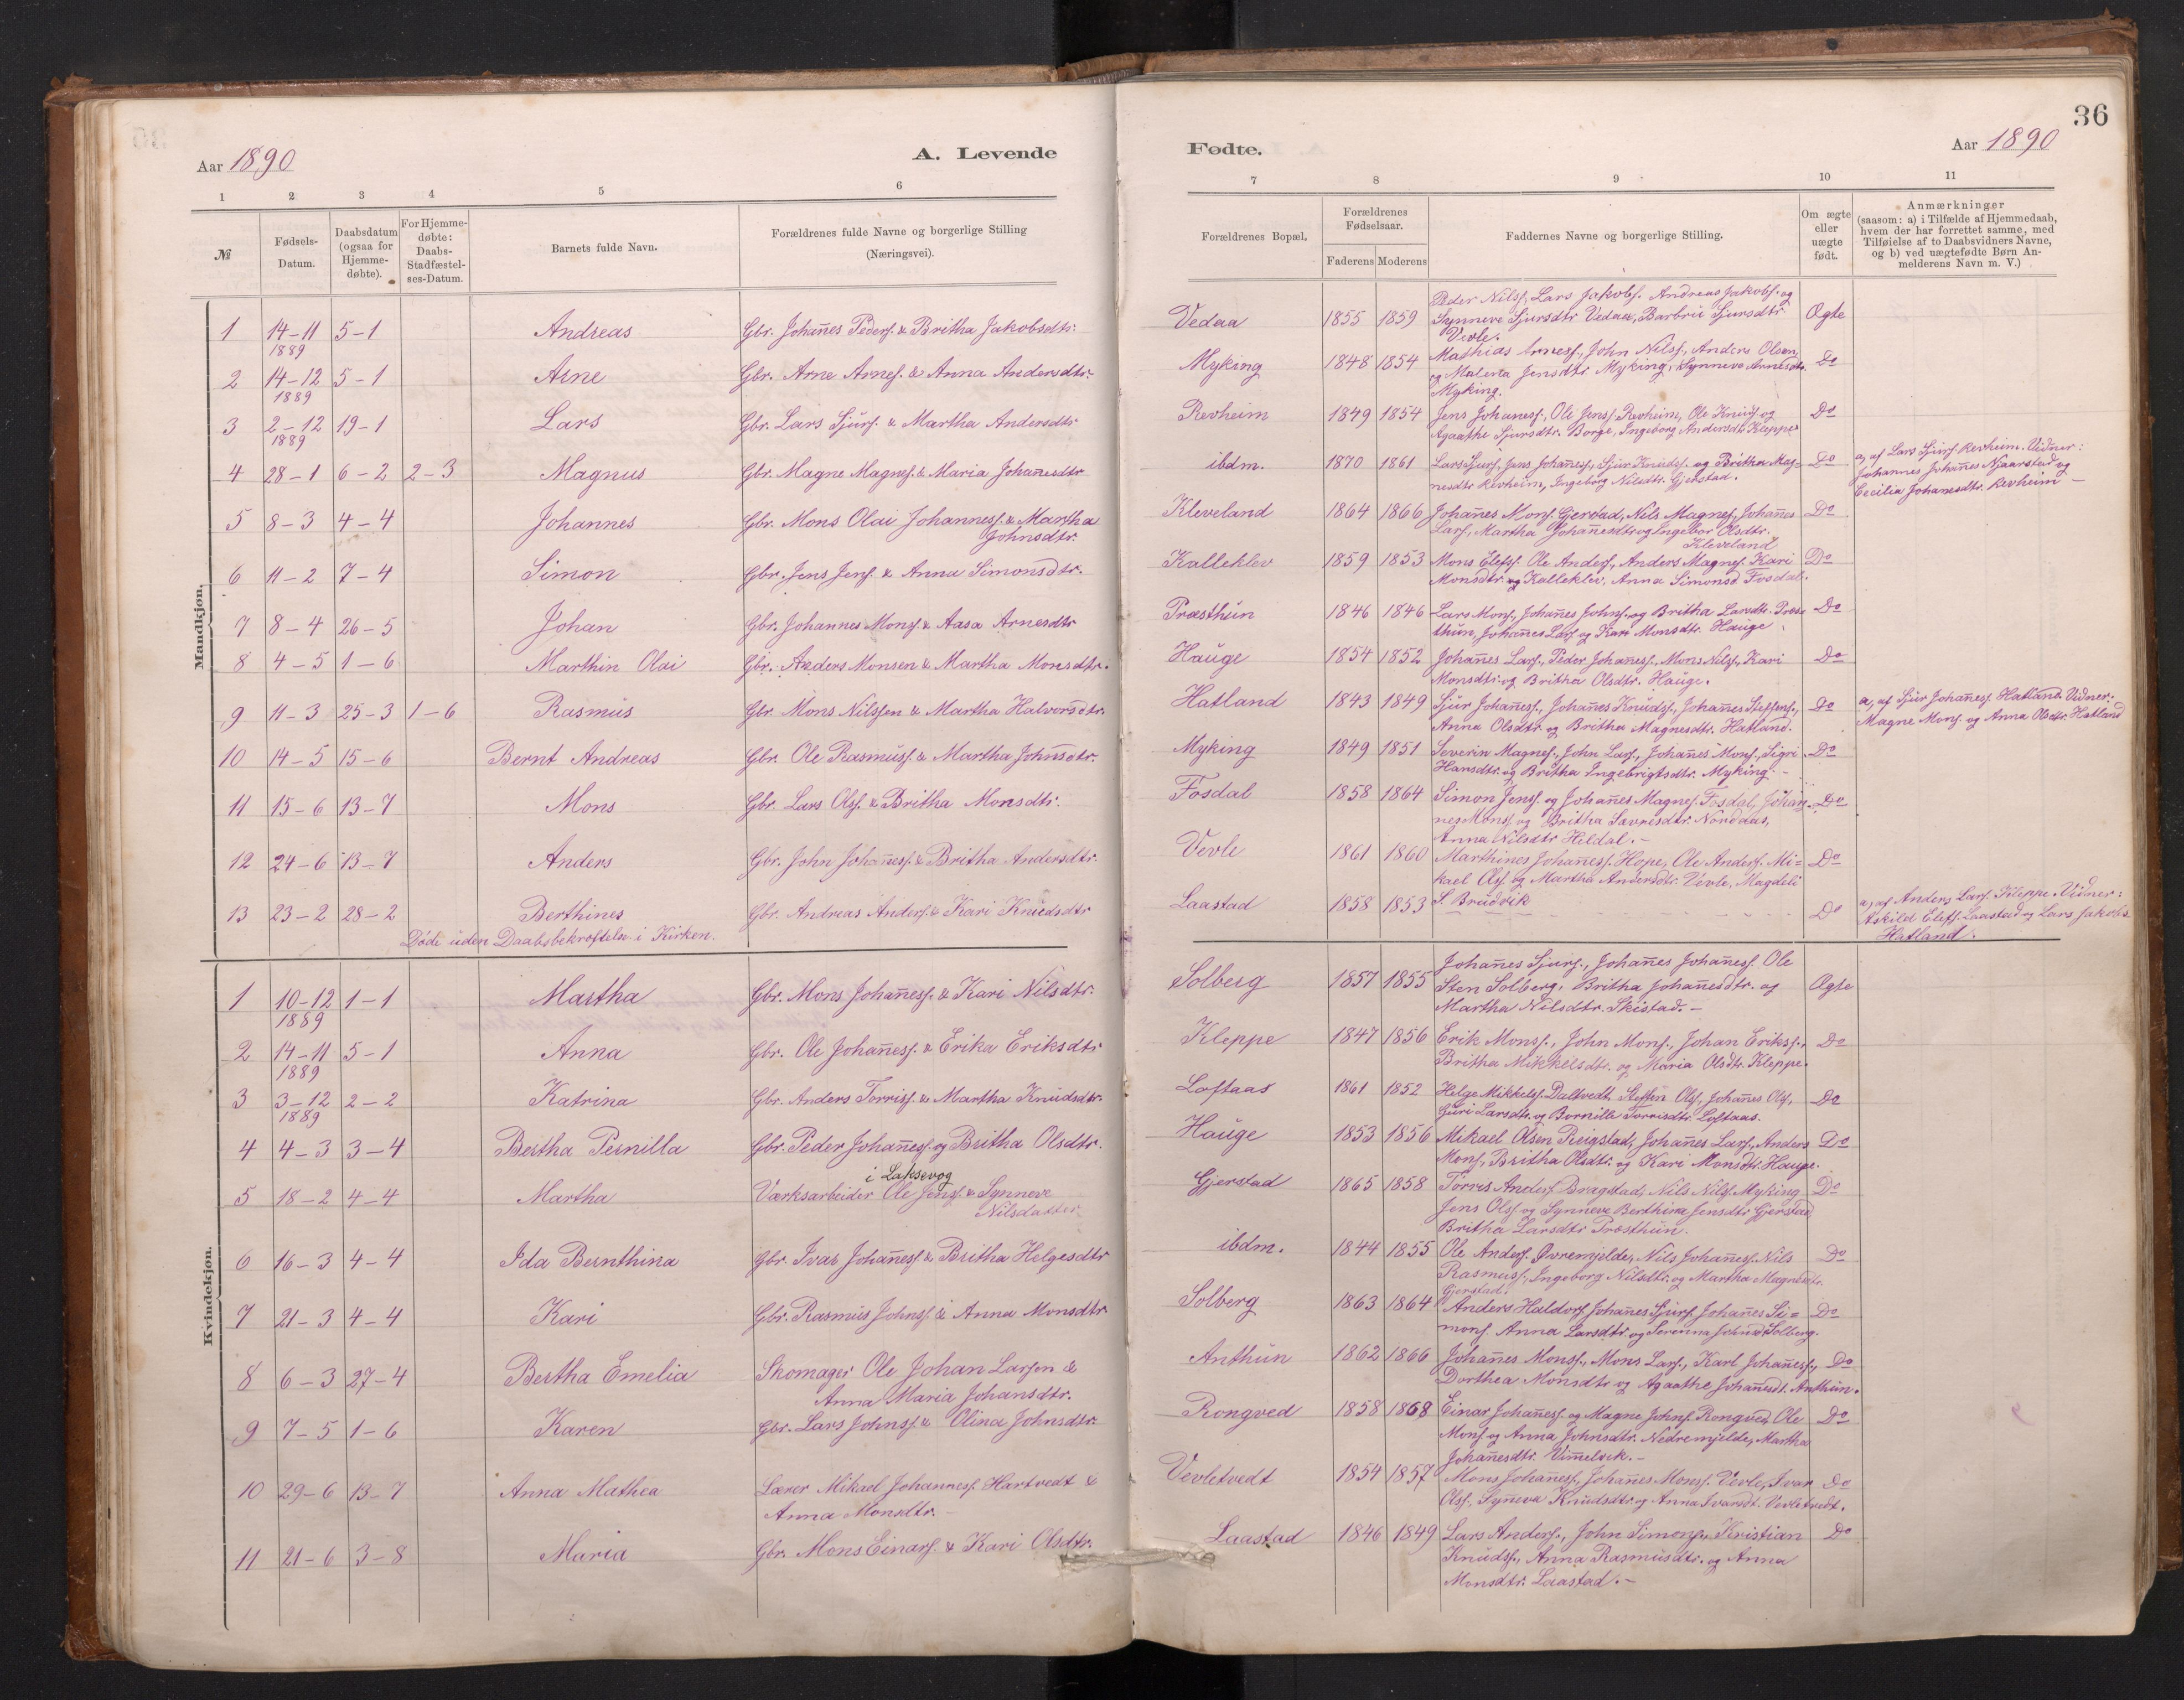 36
Aar 1890
A. Levende
Fødte.
Aar 1890
1 2 3 4 5 6 7 8 9 10 11
№
Fødsels-
Datum.
Daabsdatum
(ogsaa for
Hjemme-
døbte).
For Hjemme-
døbte:
Daabs-
Stadfæstel-
ses-Datum.
Barnets fulde Navn.
Forældrenes fulde Navne og borgerlige Stilling
(Næringsvei).
Forældrenes Bopæl.
Forældrenes
Fødselsaar.
Faderens Moderens
Faddernes Navne og borgerlige Stilling.
Om ægte
eller
uægte
født.
Anmærkninger
(saasom: a) i Tilfælde af Hjemmedaab,
hvem der har forrettet samme, med
Tilføielse af to Daabsvidners Navne,
og b) ved uægtefødte Børn An-
melderens Navn m. V.)
Mandkjøn.
1 14-11 5-1 Andreas Gbr. Johanes Peders. & Britha Jakobsdtr. Vedaa 1855 1859 Peder Nilss., Lars Jakobs. Andreas Jakobs. og Ægte
1889 Synneve Sjursdtr Vedaa, Barbru Sjursdtr
Vevle.
2 14-12 5-1 Arne Gbr. Arne Arnes. & Anna Andersdtr. Myking 1848 1854 Mathias Arness., John Nilss., Anders Olsen Do
1889 og Malena Jensdtr. Myking, Synneve Arnesdtr.
Myking.
3 2-12 19-1 Lars Gbr. Lars Sjurs. & Martha Andersdtr Revheim 1849 1854 Jens Johaness., Ole Jenss. Revheim, Ole Knuds. og Do
1889 Agaathe Sjursdtr. Borge, Ingeborg Andersdtr. Kleppe
4 28-1 6-2 2-3 Magnus Gbr. Magne Magnes. & Maria Johanesdtr ibdm. 1870 1861 Lars Sjurs., Jens Johaness., Sjur Knuds. og Britha Mag= Do a, af Lars Sjurs. Revheim. Vidner:
nesdtr Revheim, Ingeborg Nilsdtr. Gjerstad. Johannes Johanes Njaarstad og
Cecilia Johanesdtr. Revheim
5 8-3 4-4 Johannes Gbr. Mons Olai Johanness. & Martha Kleveland 1864 1866 Johanes Mons. Gjerstad, Nils Magnes., Johanes Do
Johnsdtr. Lars., Martha Johanesdtr og Ingebor Olsdtr.
Kleveland
6 11-2 7-4 Simon Gbr. Jens Jens. & Anna Simonsdtr. Kalleklev 1859 1853 Mons Elefs. Ole Anders., Anders Magnes. Kari Do
Monsdtr. og Kalleklev, Anna Simonsd Fosdal.
7 8-4 26-5 Johan Gbr. Johannes Mons. & Aasa Arnesdtr Præsthun 1846 1846 Lars Mons., Johanes Johns. og Britha Larsdtr. Præst Do
thun, Johanes Lars. og Kari Monsdtr. Hauge
8 4-5 1-6 Marthin Olai Gbr. Anders Monsen & Martha Monsdtr. Hauge 1854 1852 Johanes Lars., Peder Johaness., Mons Nilss., Kari Do
Monsdtr. og Britha Olsdtr. Hauge.
9 11-3 25-3 1-6 Rasmus Gbr. Mons Nilssen & Martha Halvorsdtr. Hatland 1843 1849 Sjur Johaness., Johanes Knuds., Johanes Steffens., Do a, af Sjur Johaness. Hatland. Vidner:
Anna Olsdtr. og Britha Magnesdtr. Hatland. Magne Mons. og Anna Olsdtr. Hatland
10 14-5 15-6 Bernt Andreas Gbr. Ole Rasmuss. & Martha Johnsdtr. Myking 1849 1851 Severin Magnes., John Lars., Johanes Mons., Sigri Do
Hansdtr. og Britha Ingebrigtsdtr. Myking.
11 15-6 13-7 Mons Gbr. Lars Ols. & Britha Monsdtr. Fosdal 1858 1864 Simon Jens. og Johanes Magnes. Fosdal, Johan- Do
nes Mons. og Britha Savrisdtr. Norddas,
Anna Nilsdtr Heldal.
12 24-6 13-7 Anders Gbr. John Johaness. & Britha Andersdtr. Vevle 1861 1860 Marthines Johaness. Hope, Ole Anders. Mi= Do
kael Ols. og Martha Andersdtr. Vevle, Magdeli
S. Brudvik
13 23-2 28-2 Berthines Gbr. Andreas Anders. & Kari Knudsdtr Laastad 1858 1853 Do a, af Anders Lars. Kleppe. Vidner:
Døde uden Daabsbekræftelse i Kirken. Askild Elefs. Laastad og Lars Jakobs.
Hatland.
Kvindekjøn.
1 10-12 1-1 Martha Gbr. Mons Johaness. & Kari Nilsdtr. Solberg 1857 1855 Johanes Sjurs., Johanes Johaness. Ole Ægte
1889 Sten Solberg, Britha Johanesdtr. og
Martha Nilsdtr. Skistad.
2 14-11 5-1 Anna Gbr. Ole Johaness. & Erika Eriksdtr Kleppe 1847 1856 Erik Monss., John Mons., Johan Erikss., Do
1889 Britha Mikkelsdtr. og Maria Olsdtr. Kleppe.
3 3-12 2-2 Katrina Gbr. Anders Torriss. & Martha Knudsdtr. Loftaas 1861 1852 Helge Mikkels. Daltvedt, Steffen Ols., Johanes Ols., Do
1889 Guri Larsdtr. og Bornille Torrisdtr. Loftaas.
4 4-3 3-4 Bertha Pernilla Gbr. Peder Johaness. og Britha Olsdtr. Hauge 1853 1856 Mikael Olsen Reigstad, Johanes Lars., Anders Do
Mons., Britha Olsdtr. og Kari Monsdtr. Hauge.
i Laksevog
5 18-2 4-4 Martha Værksarbeider Ole Jens. & Synneve Gjerstad 1865 1858 Torris Anders. Bragstad, Nils Nilss. Myking Do
Nilsdatter Jens Ols. og Synneve Berthina Jensdtr Gjerstad
Britha Larsdtr Præsthun.
6 16-3 4-4 Ida Bernthina Gbr. Ivar Johaness. & Britha Helgesdtr ibdm. 1844 1855 Ole Anders. Øvremjelde, Nils Johaness. Nils Do
Rasmuss., Ingeborg Nilsdtr. og Martha Magnesdtr.
Gjerstad.
7 21-3 4-4 Kari Gbr. Rasmus Johns. & Anna Monsdtr Solberg 1863 1864 Anders Haldors. Johanes Sjurs. Johanes Si= Do
mons. Anna Larsdtr. og Serinna Johnsdtr Solberg.
8 6-3 27-4 Bertha Emelia Skomager Ole Johan Larsen & Anthun 1862 1866 Johanes Monss., Mons Lars., Karl Johaness., Do
Anna Maria Johansdtr. Dorthea Monsdtr og Agaathe Johanesdt. Anthun.
9 7-5 1-6 Karen Gbr. Lars Johns. & Olina Johnsdtr. Rongved 1858 1868 Einar Johaness. og Magne Johns. Rongved, Ole Do
Mons. og Anna Johnsdtr. Nedremjelde, Martha
Johanesdtr. Vimelvik.
10 29-6 13-7 Anna Mathea Lærer Mikael Johanness. Hartvedt & Vevletvedt 1854 1857 Mons Johaness., Johanes Mons. Vevle, Ivar Do
Anna Monsdtr. Ols., Syneva Knudsdtr. og Anna Ivarsdt. Vevletvedt.
11 21-6 3-8 Maria Gbr. Mons Einars. & Kari Olsdtr. Laastad 1846 1849 Lars Anders., John Simons., Kristian Do
Knuds., Anna Rasmusdtr. og Anna
Monsdtr. Laastad.